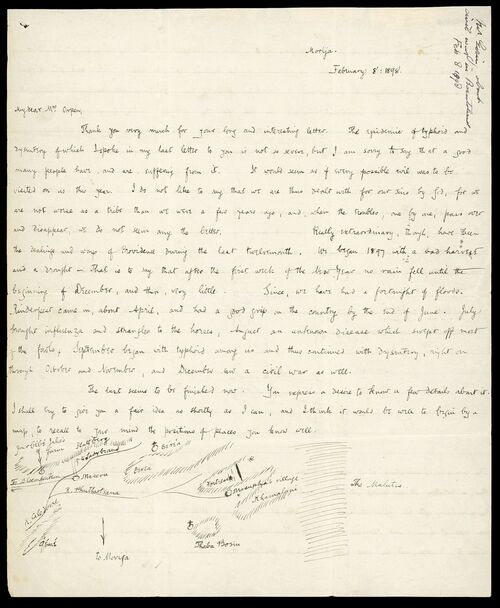 Morija.
February: 8: 1898.
My dear Mrs Orpen,
Thank you very much for your long and interesting letter. The epidemic of typhoid and
dysentery of which I spoke in my last letter to you is not so severe, but I am sorry to say that a good
many people have and are suffering from it. It would seem as if every possible evil was to be
visited on us this year. I do not like to say that we are thus dealt with for our sins by God, for we
are not worse as a tribe than we were a few years ago, and, when the troubles, one by one, pass over
and disappear, we do not seem any the better. Really extraordinary, though, have been
the dealings and ways of Providence during the last twelvemonth. We began 1897 with a bad harvest
and a drought - That is to say that after the first week of the New Year no rain fell until the
beginning of December, and then, very little. Since, we have had a fortnight of floods.
Rinderpest came in, about April, and had a good grip on the country by the end of June. July
brought influenza and strangles to the horses, August an unknown disease which swept off most
of the fowls; September began with typhoid among us and thus continued with dysentery, right on
through October and November, and December saw a civil war as well.
The last seems to be finished now. You express a desire to know a few details about it.
I shall try to give you a fair idea as shortly as I can, and I think it would be well to begin by a
map, to recall to your mind the positions of places you know well.
Platberg
Ladybrand
Berea
Berea
Maseru
R. Phuthiatsana
R. Caledon
village
Khamolane
The Malutis
Thaba Bosiu
To Morija